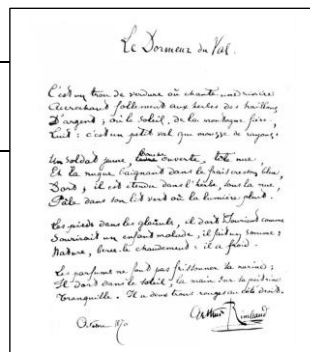 Le Dormeur du Val.
C'est un trou de verdure où chante une rivière
Accrochant follement aux herbes des haillons
D'argent ; où le soleil, de la montagne fière,
Luit : c'est un petit val qui mousse de rayons.
Un soldat jeune, bouche ouverte, tête nue
Et la nuque baignant dans le frais cresson bleu,
Dort ; il est étendu dans l'herbe, sous la nue,
Pâle dans son lit vert où la lumière pleut.
Les pieds dans les glaïeuls, il dort. Souriant comme
Sourirait un enfant malade, il fait un somme :
Nature, berce-le chaudement : il a froid.
Les parfums ne font pas frissonner sa narine ;
Il dort dans le soleil, la main sur sa poitrine
Tranquille. Il a deux trous rouges au côté droit.
Arthur Rimbaud
Octobre 1870